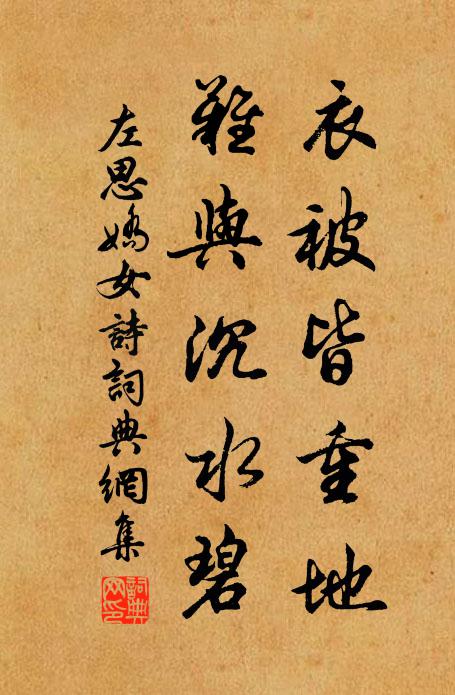 衣被皆重地
難與沉水碧
左思嬌女詩詞典網集
詞典網印